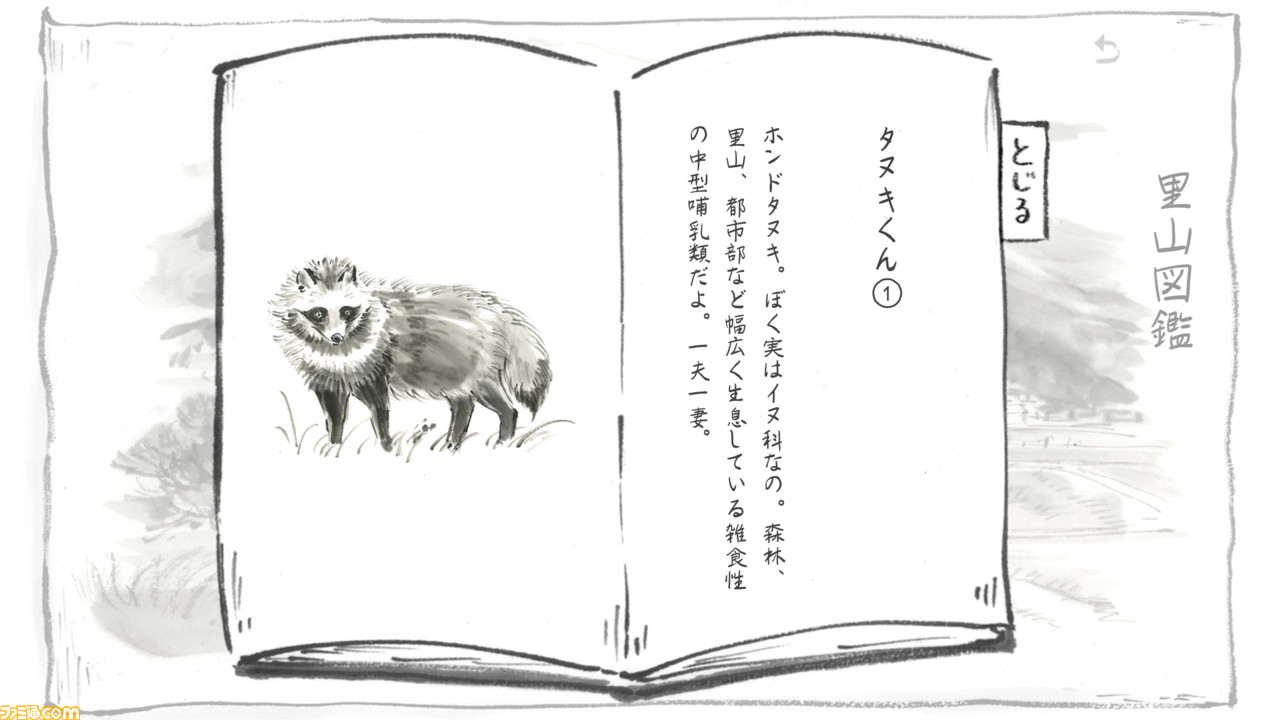 里山図鑑
とじる
タヌキくん①
ホンドタヌキ。ぼく実はイヌ科なの。森林、
里山、都市部など幅広く生息している雑食性
の中型哺乳類だよ。一夫一妻。
ファミ通.com